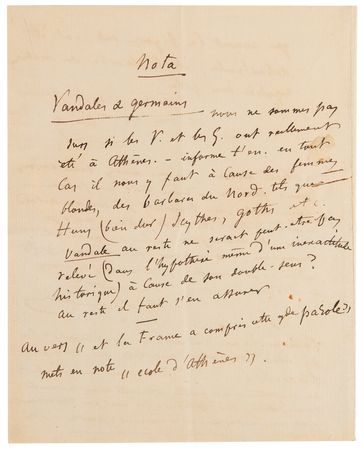 Nota
Vandales & germains nous ne sommes pas
sûrs si les V. et les G. ont réellement
été à Athènes. - informe t'en. en tout
Cas il nous y faut à Cause des femmes
blondes, des barbares du Nord. tels que
Huns (bien dur) Scythes, goths etc.
Vandale au reste ne serait peut-etre pas
relevé (dans l'hypothèse même d'une inexactitude
historique) à Cause de son double-sens ?
au reste il faut s'en assurer
Au vers « et la France a compris cette parole »
mets en note « ecole d'Athènes ».